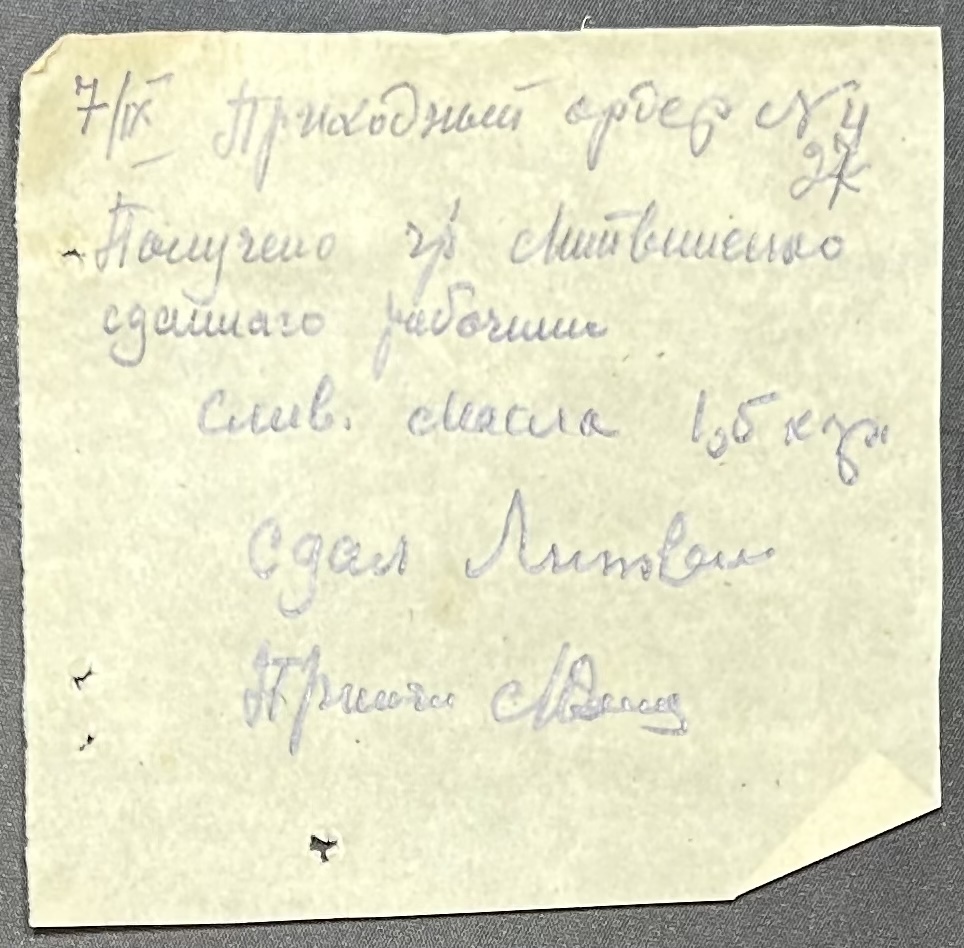 7/IX Приходный ордер № 4
27к
Получено ч/з Литвиненко
сданнаго рабочими
Слив. масла 1,5 кгр.
Сдал Литвин
Принял